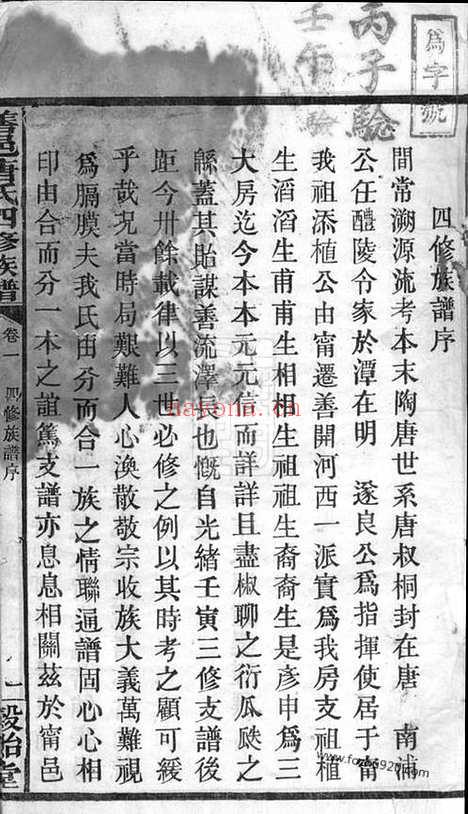 為字號
丙子驗
壬午驗
四修族譜序
間常溯源流考本末陶唐世系唐叔桐封在唐　南浦
公任醴陵令家於潭在明　遂良公為指揮使居于甯
我祖添植公由甯遷善開河西一派實為我房支祖植
生滔滔生甫甫生相相生祖祖生裔裔生是彥申為三
大房迄今本本元元信而詳詳且盡椒聊之衍瓜瓞之
緜蓋其貽謀善流澤長也慨自光緒壬寅三修支譜後
距今卅餘載律以三世必修之例以其時考之顧可緩
乎哉況當時局艱難人心渙散敬宗收族大義萬難視
為膈膜夫我氏由分而合一族之情聯通譜固心心相
印由合而分一本之誼篤支譜亦息息相關茲於甯邑
善邑唐氏四修族譜
卷一　四修族譜序
一
穀詒堂
nayona.cn
www.fozu5920.com